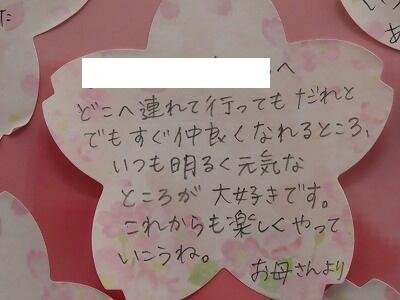 へ
どこへ連れて行ってもだれと
でもすぐ仲良くなれるところ、
いつも明るく元気な
ところが大好きです。
これからも楽しくやって
いこうね。
お母さんより
た
い
あ